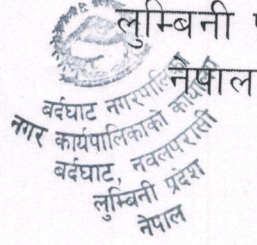 लुम्बिनी
नेपाल
बर्दघाट नगरपालिका
नगर कार्यपालिकाको
बर्दघाट, नवलपरासी
लुम्बिनी प्रदेश
नेपाल